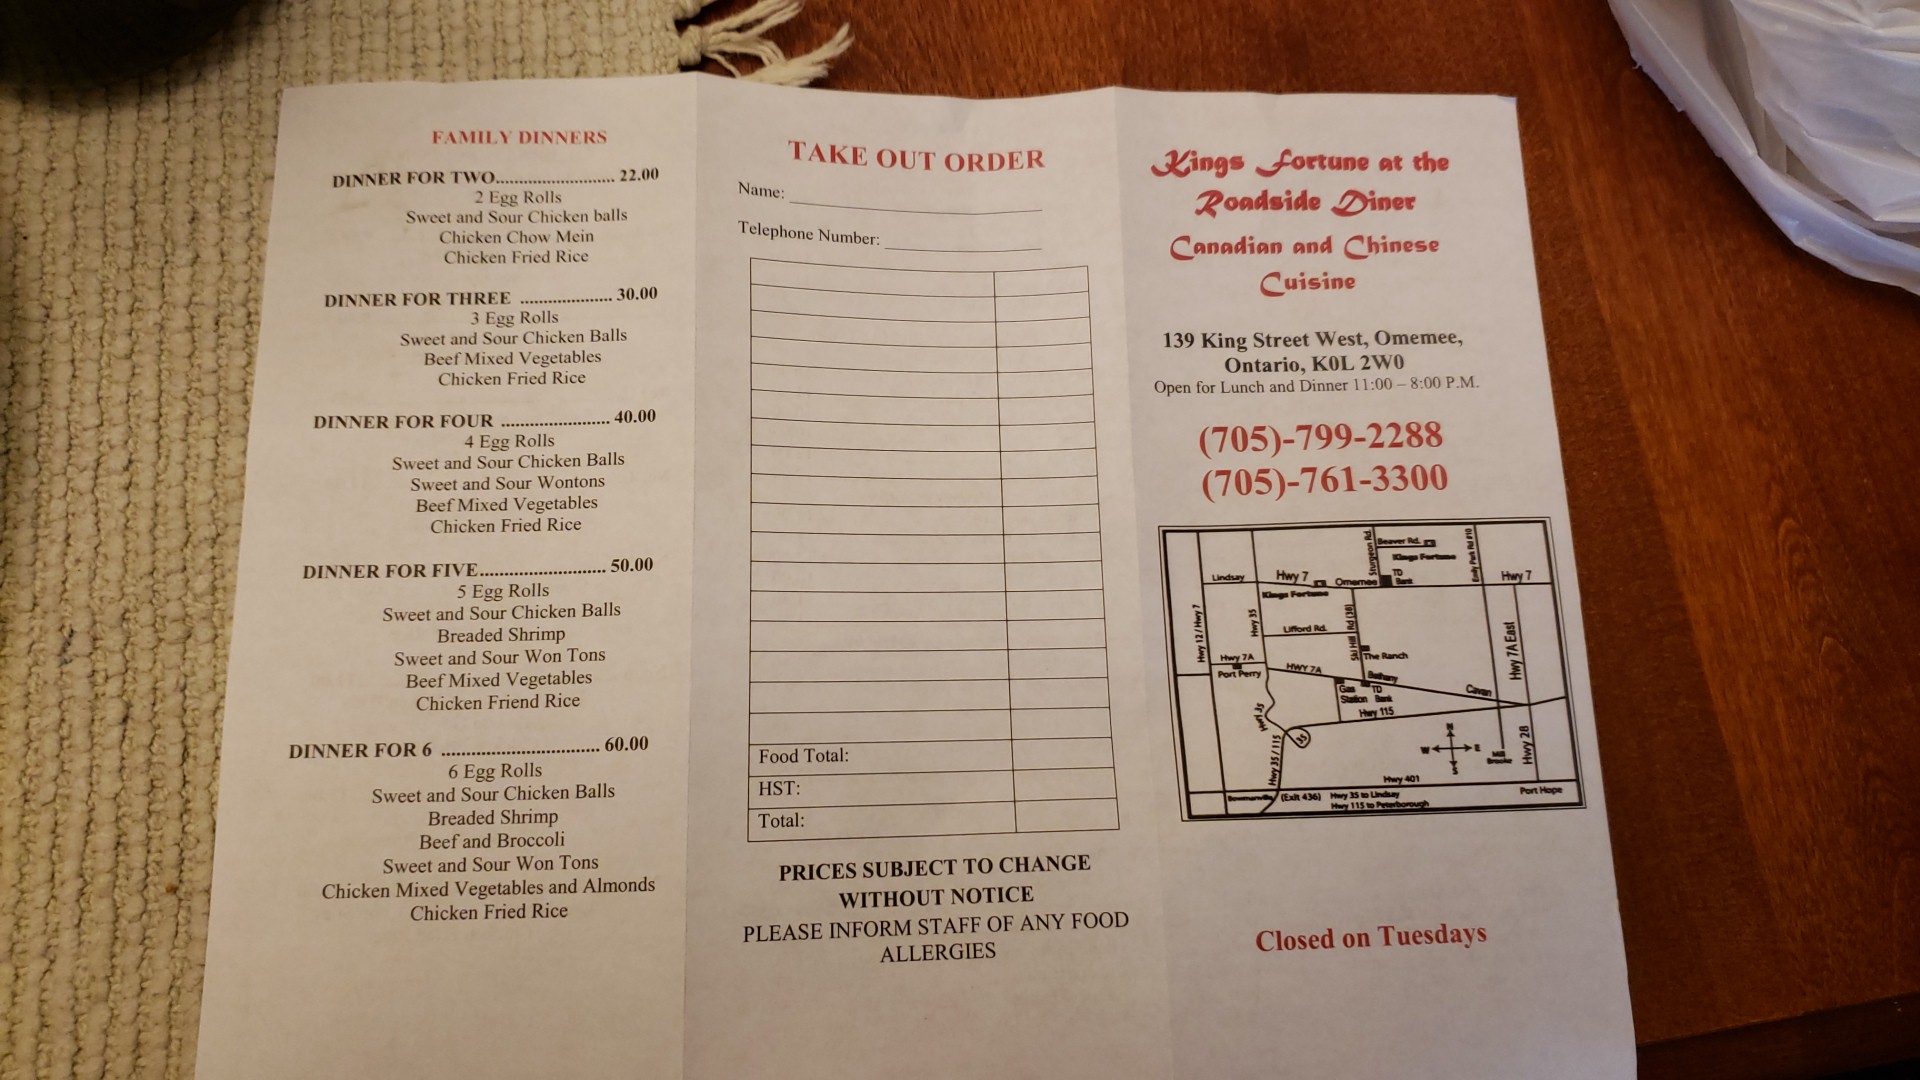 FAMILY DINNERS
DINNER FOR TWO.......................... 22.00
2 Egg Rolls
Sweet and Sour Chicken balls
Chicken Chow Mein
Chicken Fried Rice
DINNER FOR THREE .................... 30.00
3 Egg Rolls
Sweet and Sour Chicken Balls
Beef Mixed Vegetables
Chicken Fried Rice
DINNER FOR FOUR ........................ 40.00
4 Egg Rolls
Sweet and Sour Chicken Balls
Sweet and Sour Wontons
Beef Mixed Vegetables
Chicken Fried Rice
DINNER FOR FIVE........................... 50.00
5 Egg Rolls
Sweet and Sour Chicken Balls
Breaded Shrimp
Sweet and Sour Won Tons
Beef Mixed Vegetables
Chicken Friend Rice
DINNER FOR 6 .................................. 60.00
6 Egg Rolls
Sweet and Sour Chicken Balls
Breaded Shrimp
Beef and Broccoli
Sweet and Sour Won Tons
Chicken Mixed Vegetables and Almonds
Chicken Fried Rice
TAKE OUT ORDER
Name:
Telephone Number:
Food Total:
HST:
Total:
PRICES SUBJECT TO CHANGE
WITHOUT NOTICE
PLEASE INFORM STAFF OF ANY FOOD
ALLERGIES
Kings Fortune at the
Roadside Diner
Canadian and Chinese
Cuisine
139 King Street West, Omemee,
Ontario, K0L 2W0
Open for Lunch and Dinner 11:00 – 8:00 P.M.
(705)-799-2288
(705)-761-3300
Sturgeon Rd.
Beaver Rd.
Kings Fortune
Emily Park Rd #10
Lindsay
Hwy 7
Omemee
TD
Bank
Hwy 7
Kings Fortune
Hwy 12 / Hwy 7
Hwy 35
Lifford Rd.
Ski Hill Rd (38)
The Ranch
Hwy 7A East
Hwy 7A
Port Perry
HWY 7A
Bethany
Gas
Station
TD
Bank
Cavan
Hwy 115
Hwy 35
Hwy 35 / 115
35
N
W
E
S
Mill
Brooke
Hwy 28
Hwy 401
Bowmanville
(Exit 436)
Hwy 35 to Lindsay
Hwy 115 to Peterborough
Port Hope
Closed on Tuesdays